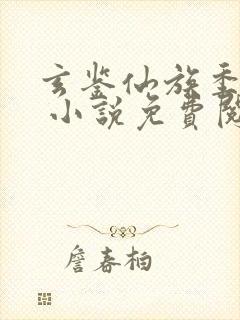 玄鉴仙族季
小說免費閱
詹春柏